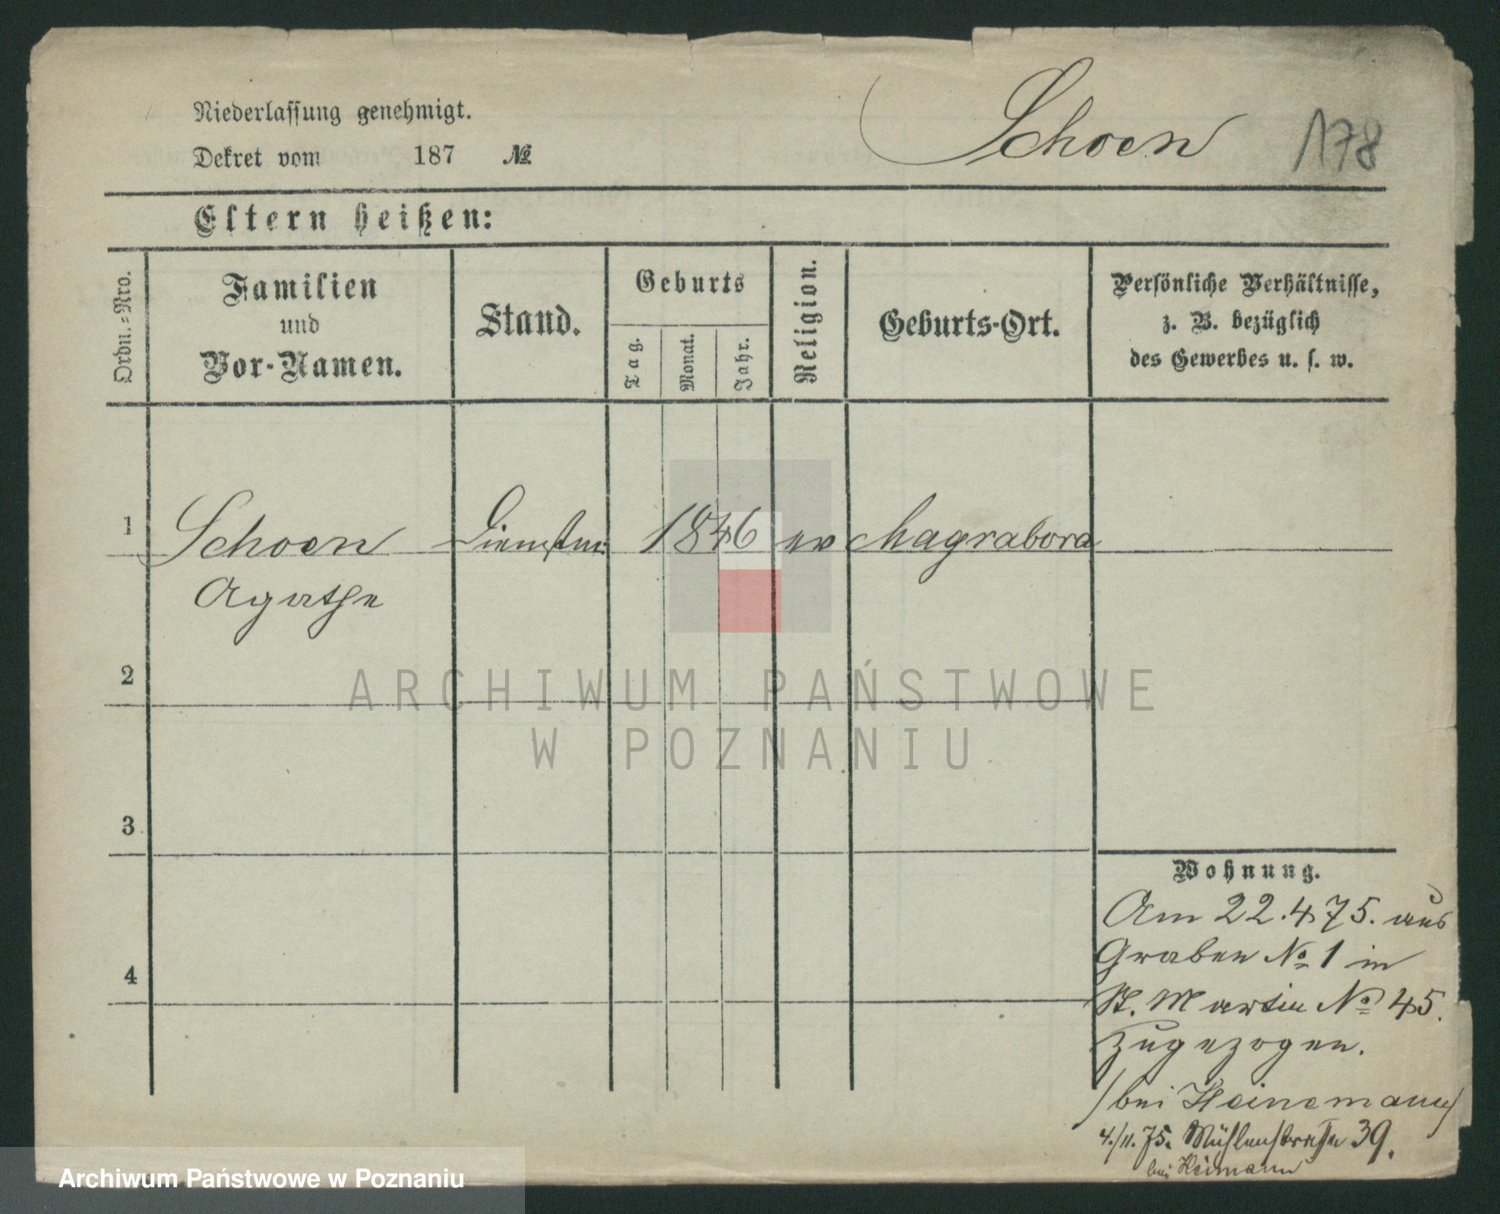 Niederlassung genehmigt.
Dekret vom 187 №
Schoen 178
Eltern heißen:
Ordn.-Nro.
Familien
und
Vor-Namen.
Stand.
Geburts
Tag.
Monat.
Jahr.
Religion.
Geburts-Ort.
Persönliche Verhältnisse,
z. B. bezüglich
des Gewerbes u. s. w.
1 Schoen 1846 ev Magrabora
Agathe
2
3
4
Wohnung.
Am 22.4.75. aus
Graben No 1 in
St. Martin No 45.
zugezogen.
/bei Heinemann/
4./11. 75. Mühlenstraße 39.
bei Heimann
ARCHIWUM PAŃSTWOWE
W POZNANIU
Archiwum Państwowe w Poznaniu